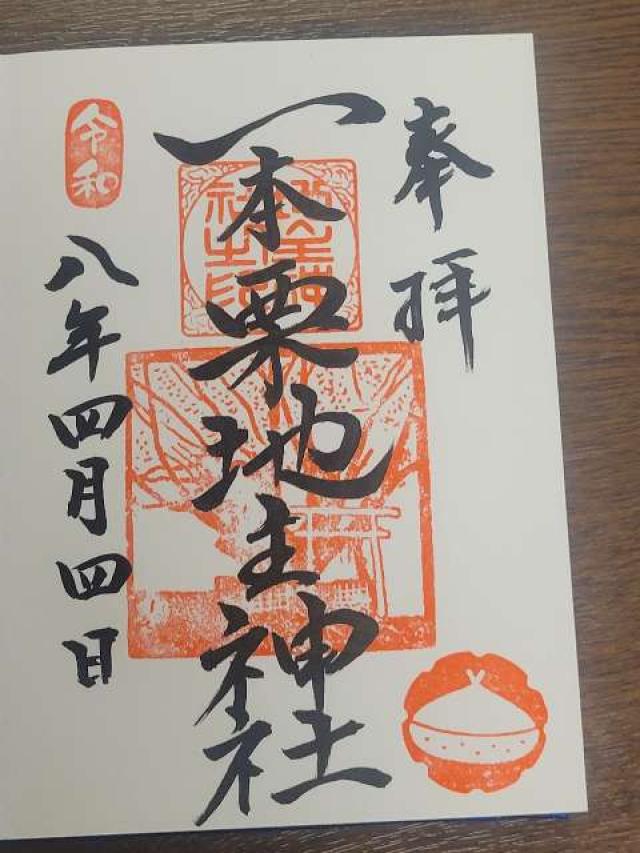 奉拝
一本栗地主神社
令和
八年四月四日